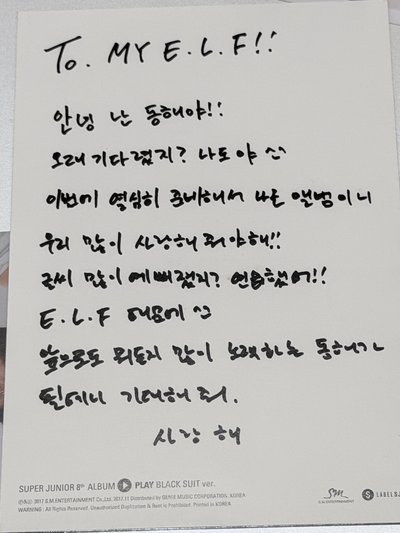 To. MY E.L.F!!
안녕 난 동해야!!
오래 기다렸지? 나도야 ^^
이번에 열심히 준비해서 나온 앨범이니
우리 많이 사랑해 줘야해!!
글씨 많이 예뻐졌지? 연습했어!!
E.L.F 때문에 ^^
앞으로도 뭐든지 많이 노력하는 동해가
될테니 기대해 줘.
사랑해
SUPER JUNIOR 8th ALBUM PLAY BLACK SUIT ver.
℗&© 2017 S.M.ENTERTAINMENT Co.,Ltd. 2017.11 Distributed by GENIE MUSIC CORPORATION, KOREA
WARNING : All Rights Reserved. Unauthorized Duplication & Rent is Prohibited. Printed in KOREA
SM
S.M.ENTERTAINMENT
S LABEL SJ